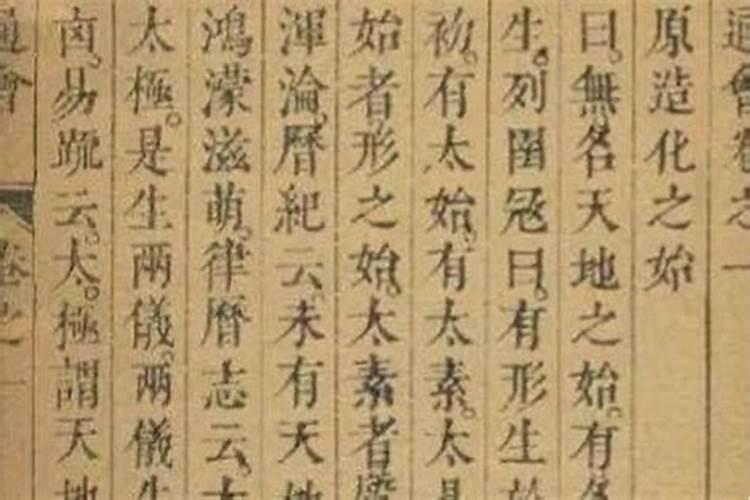 通會卷之一
原造化之始
曰無名天地之始。有名
生。列圄冦曰。有形生於
初。有太始。有太素。太易
始者形之始。太素者
渾淪。曆紀云。未有天地
鴻濛滋萌。律曆志云。太
太極。是生兩儀。兩儀生
卤。易䟽云。太。極謂天地
通會 卷之一